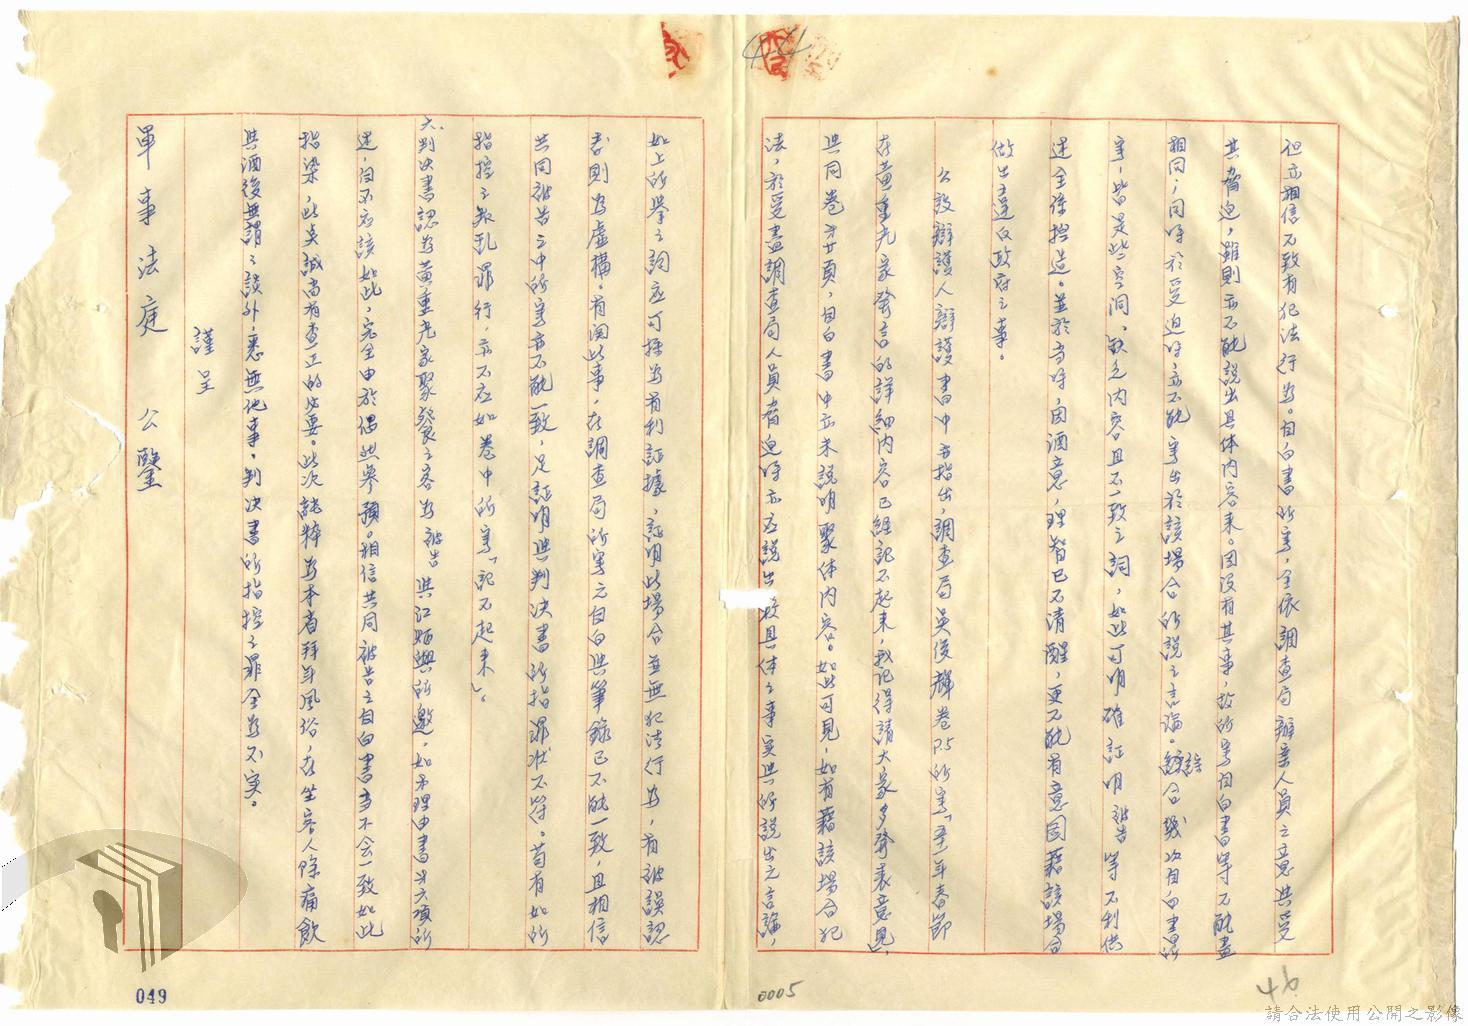 但亦相信不致有犯法行為。自白書所寫，全依調查局辦案人員之意與受
其脅迫，雖則亦不能說出具体內容來。因沒有其事，故所寫自白書等不能盡
相同，同時於受迫時，亦不能寫出於該場合所說之言論。綜合幾次自白書所
寫，皆是些空洞、缺乏內容且不一致之詞，如此可明確証明被告等不利供
述全係捏造。並於當時，因酒意，理智已不清醒，更不能有意圖藉該場合
做出違反政府之事。
公設辯護人辯護書中亦指出，調查局吳俊輝卷P.5所寫「五一年春節
在黃重光家發言的詳細內容已經記不起來，我記得請大家多發表意見」
與同卷廿頁，自白書中亦未說明聚体內容。如此可見，如有藉該場合犯
法，於受盡調查局人員脅迫時亦應說出較具体之事实與所說出之言論，
如上所舉之詞應可採為有利証據，証明此場合並無犯法行為，有被誤認
否則為虛構。有関此事，在調查局所寫之自白與筆錄已不能一致，且相信
共同被告之中所寫亦不能一致，足証明與判決書所指罪狀不符。苟有如所
指控之叛乱罪行，亦不应如卷中所寫「記不起來」。
六、判決書認為黃重光家聚餐之客為被告與江炳興所邀，如本理由書第六項所
述，自不应該如此，完全由於偶然參預。相信共同被告之自白書亦不会一致如此
指染，此矣誠尚有查正的必要。此次純粹為本省拜年風俗，在坐客人除痛飲
與酒後無謂之談外，悉無他事。判決書所指控之罪全為不实。
謹呈
軍事法庭 公鑒
44
46
0005
049
請合法使用公開之影像